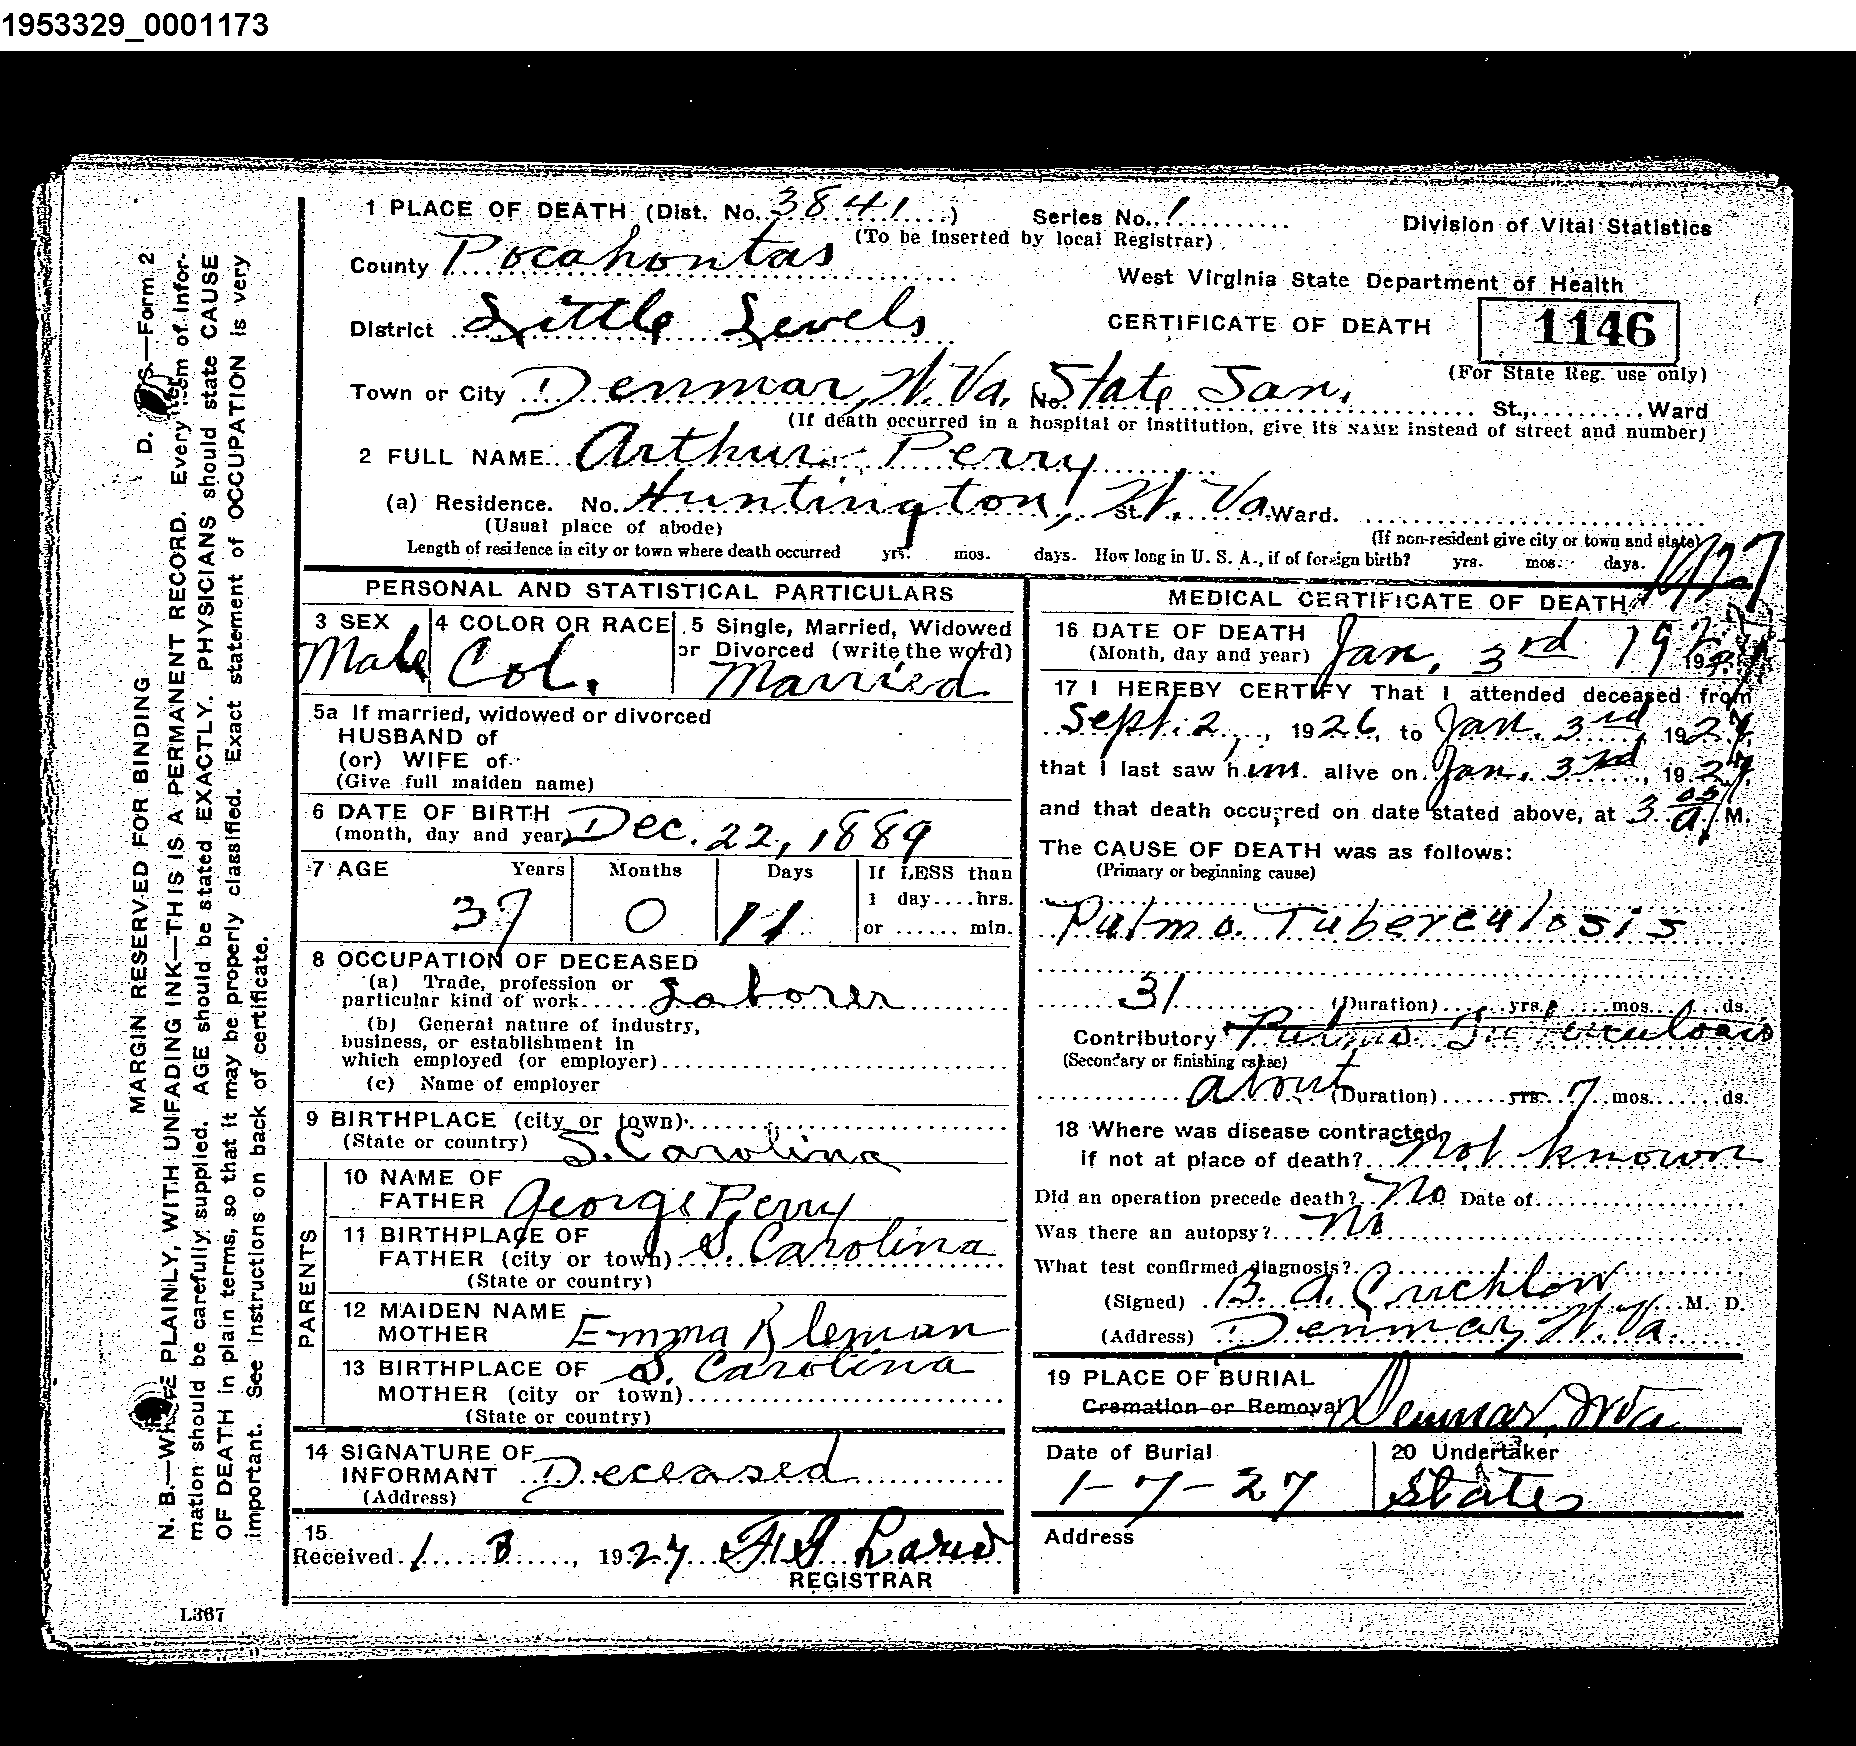 1953329_0001173
1 PLACE OF DEATH (Dist. No. 3841) Series No. 1 Division of Vital Statistics
(To be inserted by local Registrar)
County Pocahontas
West Virginia State Department of Health
District Little Levels
CERTIFICATE OF DEATH 1146
(For State Reg. use only)
Town or City Denmar, W. Va. No. State San. St., Ward
(If death occurred in a hospital or institution, give its NAME instead of street and number)
2 FULL NAME Arthur Perry
(a) Residence. No. Huntington, St. W. Va. Ward.
(Usual place of abode) (If non-resident give city or town and state)
Length of residence in city or town where death occurred yrs. mos. days. How long in U. S. A., if of foreign birth? yrs. mos. days.
PERSONAL AND STATISTICAL PARTICULARS
3 SEX 4 COLOR OR RACE 5 Single, Married, Widowed
or Divorced (write the word)
Male Col. Married
5a If married, widowed or divorced
HUSBAND of
(or) WIFE of
(Give full maiden name)
6 DATE OF BIRTH
(month, day and year) Dec. 22, 1889
7 AGE Years Months Days If LESS than
1 day....hrs.
37 0 11 or ...... min.
8 OCCUPATION OF DECEASED
(a) Trade, profession or
particular kind of work Laborer
(b) General nature of industry,
business, or establishment in
which employed (or employer)
(c) Name of employer
9 BIRTHPLACE (city or town)
(State or country) S. Carolina
PARENTS
10 NAME OF
FATHER George Perry
11 BIRTHPLACE OF
FATHER (city or town) S. Carolina
(State or country)
12 MAIDEN NAME
MOTHER Emma Kleman
13 BIRTHPLACE OF S. Carolina
MOTHER (city or town)
(State or country)
14 SIGNATURE OF
INFORMANT Deceased
(Address)
15
Received 1 3, 1927
REGISTRAR
MEDICAL CERTIFICATE OF DEATH
16 DATE OF DEATH
(Month, day and year) Jan. 3rd 1927
17 I HEREBY CERTIFY That I attended deceased from
Sept. 2, 1926, to Jan. 3rd, 1927
that I last saw him alive on Jan. 3rd, 1927
and that death occurred on date stated above, at 3 05 a M.
The CAUSE OF DEATH was as follows:
(Primary or beginning cause)
Pulmo. Tuberculosis
31 (Duration) yrs. mos. ds.
Contributory Pulmo. Tuberculosis
(Secondary or finishing cause)
about (Duration) yrs. 7 mos. ds.
18 Where was disease contracted
if not at place of death? Not known
Did an operation precede death? No Date of
Was there an autopsy? No
What test confirmed diagnosis?
(Signed) B. A. Crichlow M. D.
(Address) Denmar, W. Va.
19 PLACE OF BURIAL
Cremation or Removal Denmar, W Va
Date of Burial 20 Undertaker
1-7-27 States
Address
MARGIN RESERVED FOR BINDING
D. S.—Form 2
N. B.—WRITE PLAINLY, WITH UNFADING INK—THIS IS A PERMANENT RECORD. Every item of infor-
mation should be carefully supplied. AGE should be stated EXACTLY. PHYSICIANS should state CAUSE
OF DEATH in plain terms, so that it may be properly classified. Exact statement of OCCUPATION is very
important. See instructions on back of certificate.
L367